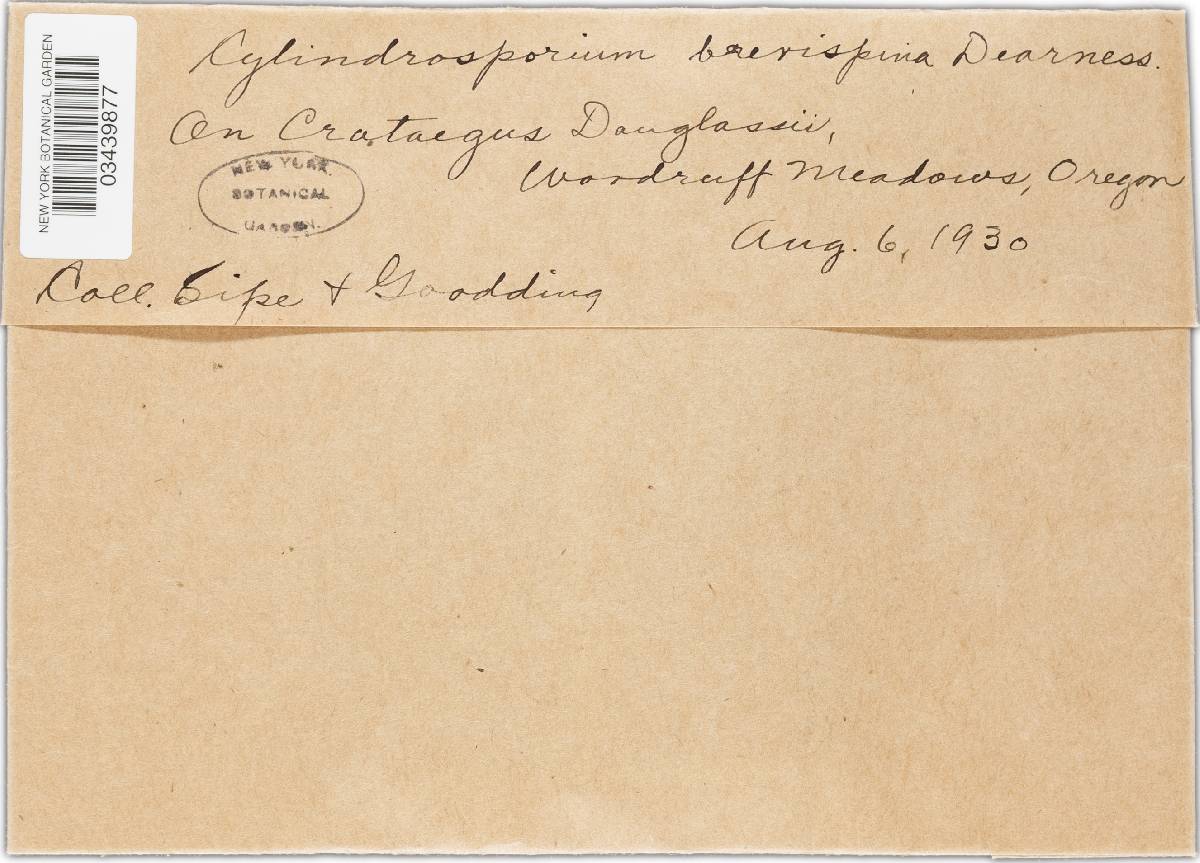 Cylindrosporium brevispina Dearness.
On Crataegus Douglassii,
Woodruff Meadows, Oregon
Aug. 6, 1930
Coll. Sipe & Goodding
NEW YORK
BOTANICAL
GARDEN.
NEW YORK BOTANICAL GARDEN
03439877